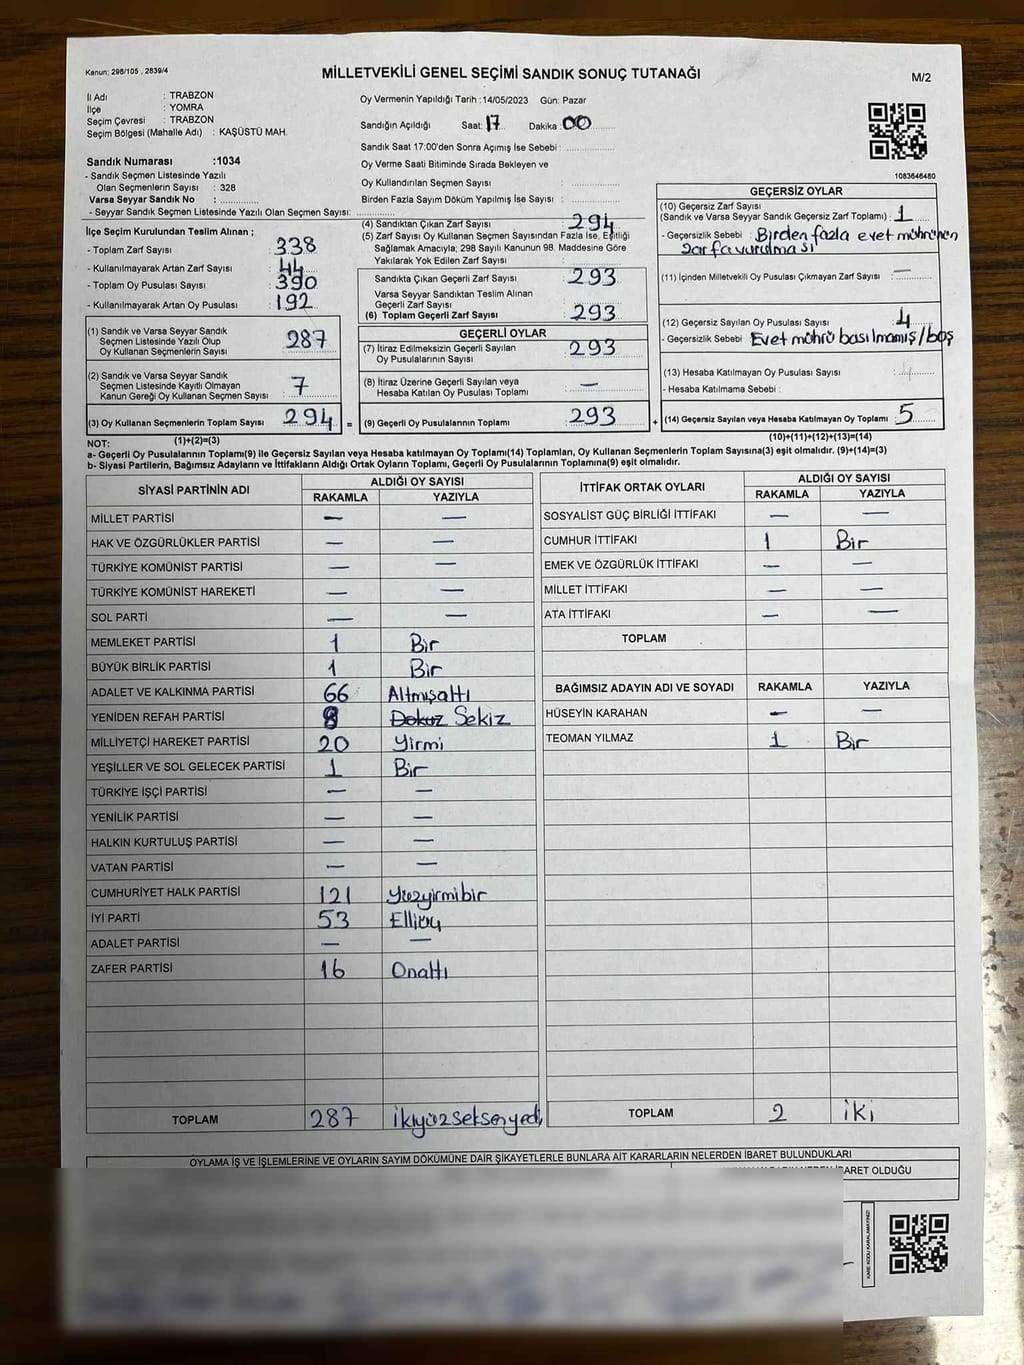 Kanun: 298/105 , 2839/4
MİLLETVEKİLİ GENEL SEÇİMİ SANDIK SONUÇ TUTANAĞI
M/2
İl Adı : TRABZON
İlçe : YOMRA
Seçim Çevresi : TRABZON
Seçim Bölgesi (Mahalle Adı) : KAŞÜSTÜ MAH.
Sandık Numarası :1034
- Sandık Seçmen Listesinde Yazılı
Olan Seçmenlerin Sayısı : 328
Varsa Seyyar Sandık No : ............
- Seyyar Sandık Seçmen Listesinde Yazılı Olan Seçmen Sayısı: ............
Oy Vermenin Yapıldığı Tarih :14/05/2023 Gün: Pazar
Sandığın Açıldığı Saat: 17 Dakika : 00
Sandık Saat 17:00'den Sonra Açımış İse Sebebi : ............
Oy Verme Saati Bitiminde Sırada Bekleyen ve
Oy Kullandırılan Seçmen Sayısı : ............
Birden Fazla Sayım Döküm Yapılmış İse Sayısı : ............
1083646480
İlçe Seçim Kurulundan Teslim Alınan ;
- Toplam Zarf Sayısı : 338
- Kullanılmayarak Artan Zarf Sayısı : 44
- Toplam Oy Pusulası Sayısı : 390
- Kullanılmayarak Artan Oy Pusulası : 192
(1) Sandık ve Varsa Seyyar Sandık
Seçmen Listesinde Yazılı Olup
Oy Kullanan Seçmenlerin Sayısı : 287
(2) Sandık ve Varsa Seyyar Sandık
Seçmen Listesinde Kayıtlı Olmayan
Kanun Gereği Oy Kullanan Seçmen Sayısı : 7
(3) Oy Kullanan Seçmenlerin Toplam Sayısı : 294 =
(4) Sandıktan Çıkan Zarf Sayısı : 294
(5) Zarf Sayısı Oy Kullanan Seçmen Sayısından Fazla İse, Eşitliği
Sağlamak Amacıyla; 298 Sayılı Kanunun 98. Maddesine Göre
Yakılarak Yok Edilen Zarf Sayısı : ............
Sandıkta Çıkan Geçerli Zarf Sayısı : 293
Varsa Seyyar Sandıktan Teslim Alınan
Geçerli Zarf Sayısı : ............
(6) Toplam Geçerli Zarf Sayısı : 293
GEÇERLİ OYLAR
(7) İtiraz Edilmeksizin Geçerli Sayılan
Oy Pusulalarının Sayısı : 293
(8) İtiraz Üzerine Geçerli Sayılan veya
Hesaba Katılan Oy Pusulası Toplamı : —
(9) Geçerli Oy Pusulalarının Toplamı : 293 +
GEÇERSİZ OYLAR
(10) Geçersiz Zarf Sayısı
(Sandık ve Varsa Seyyar Sandık Geçersiz Zarf Toplamı) : 1
- Geçersizlik Sebebi : Birden fazla evet mührünün
zarfa vurulması
(11) İçinden Milletvekili Oy Pusulası Çıkmayan Zarf Sayısı : —
(12) Geçersiz Sayılan Oy Pusulası Sayısı : 4
- Geçersizlik Sebebi : Evet mührü basılmamış/boş
(13) Hesaba Katılmayan Oy Pusulası Sayısı :
- Hesaba Katılmama Sebebi :
(14) Geçersiz Sayılan veya Hesaba Katılmayan Oy Toplamı : 5
NOT: (1)+(2)=(3) (10)+(11)+(12)+(13)=(14)
a- Geçerli Oy Pusulalarının Toplamı(9) ile Geçersiz Sayılan veya Hesaba katılmayan Oy Toplamı(14) Toplamları, Oy Kullanan Seçmenlerin Toplam Sayısına(3) eşit olmalıdır. (9)+(14)=(3)
b- Siyasi Partilerin, Bağımsız Adayların ve İttifakların Aldığı Ortak Oyların Toplamı, Geçerli Oy Pusulalarının Toplamına(9) eşit olmalıdır.
SİYASİ PARTİNİN ADI ALDIĞI OY SAYISI
RAKAMLA YAZIYLA
MİLLET PARTİSİ — —
HAK VE ÖZGÜRLÜKLER PARTİSİ — —
TÜRKİYE KOMÜNİST PARTİSİ — —
TÜRKİYE KOMÜNİST HAREKETİ — —
SOL PARTİ — —
MEMLEKET PARTİSİ 1 Bir
BÜYÜK BİRLİK PARTİSİ 1 Bir
ADALET VE KALKINMA PARTİSİ 66 Altmışaltı
YENİDEN REFAH PARTİSİ 8 Dokuz Sekiz
MİLLİYETÇİ HAREKET PARTİSİ 20 Yirmi
YEŞİLLER VE SOL GELECEK PARTİSİ 1 Bir
TÜRKİYE İŞÇİ PARTİSİ — —
YENİLİK PARTİSİ — —
HALKIN KURTULUŞ PARTİSİ — —
VATAN PARTİSİ — —
CUMHURİYET HALK PARTİSİ 121 Yüzyirmibir
İYİ PARTİ 53 Elliüç
ADALET PARTİSİ — —
ZAFER PARTİSİ 16 Onaltı
TOPLAM 287 İkiyüzseksenyedi
İTTİFAK ORTAK OYLARI ALDIĞI OY SAYISI
RAKAMLA YAZIYLA
SOSYALİST GÜÇ BİRLİĞİ İTTİFAKI — —
CUMHUR İTTİFAKI 1 Bir
EMEK VE ÖZGÜRLÜK İTTİFAKI — —
MİLLET İTTİFAKI — —
ATA İTTİFAKI — —
TOPLAM
BAĞIMSIZ ADAYIN ADI VE SOYADI RAKAMLA YAZIYLA
HÜSEYİN KARAHAN — —
TEOMAN YILMAZ 1 Bir
TOPLAM 2 İki
OYLAMA İŞ VE İŞLEMLERİNE VE OYLARIN SAYIM DÖKÜMÜNE DAİR ŞİKAYETLERLE BUNLARA AİT KARARLARIN NELERDEN İBARET BULUNDUKLARI
İBARET OLDUĞU
KARE KODU KARALAMAYINIZ!